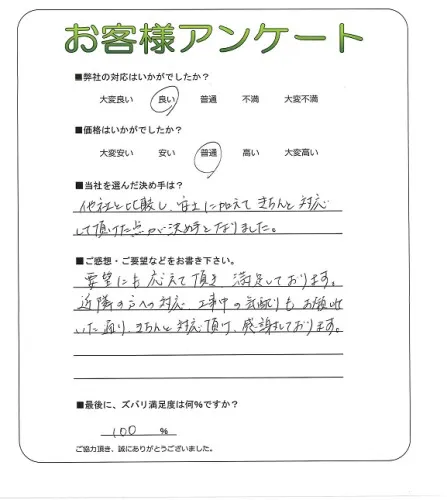 お客様アンケート
■弊社の対応はいかがでしたか？
大変良い 良い 普通 不満 大変不満
■価格はいかがでしたか？
大変安い 安い 普通 高い 大変高い
■当社を選んだ決め手は？
他社と比較し、安さに加えてきちんと対応
して頂けた点が決め手となりました。
■ご感想・ご要望などをお書き下さい。
要望にも応えて頂き 満足しております。
近隣の方への対応、工事中の気配りもお願いして
いた通り、きちんと対応頂け、感謝しております。
■最後に、ズバリ満足度は何%ですか？
100 %
ご協力頂き、誠にありがとうございました。